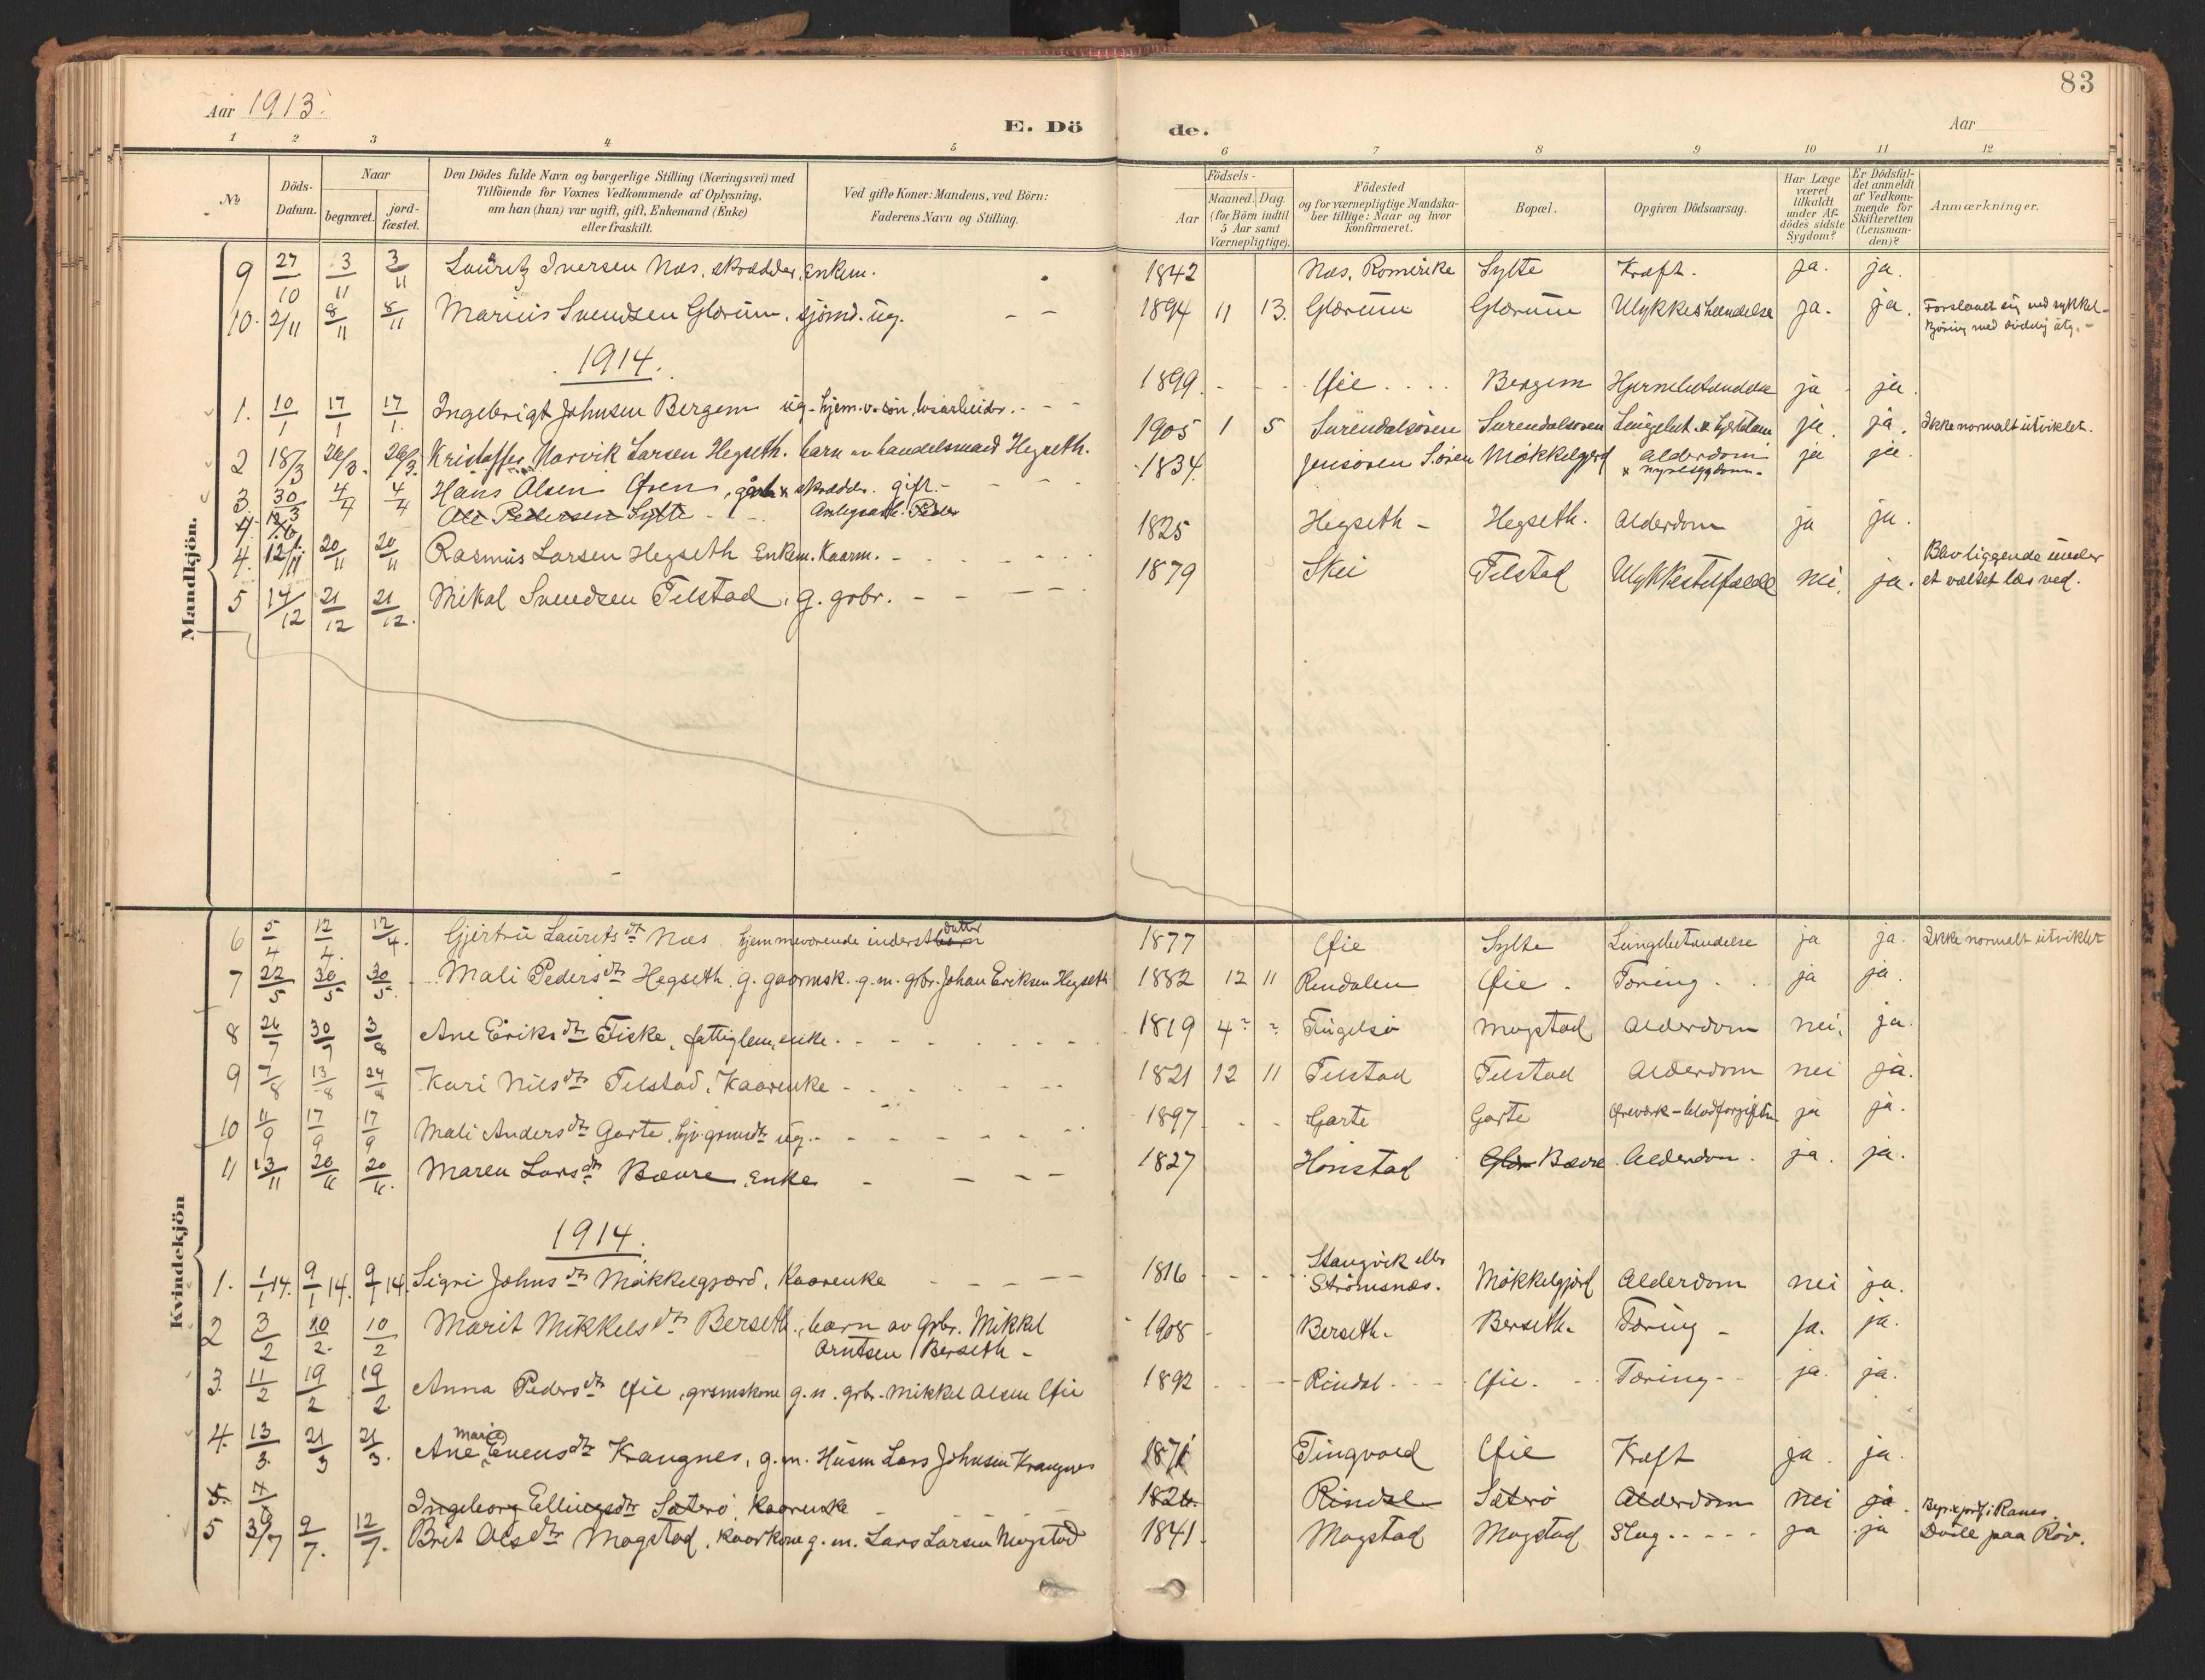 83
Aar 1913.
E. Dö de.
Aar
1 2 3 4 5 6 7 8 9 10 11 12
№
Döds-Datum.
Naar
begravet.
jord-fæstet.
Den Dödes fulde Navn og borgerlige Stilling (Næringsvei) med
Tilföiende for Voxnes Vedkommende af Oplysning,
om han (hun) var ugift, gift, Enkemand (Enke)
eller fraskilt.
Ved gifte Koner: Mandens, ved Börn:
Faderens Navn og Stilling.
Födsels-
Aar
Maaned. Dag.
(for Börn indtil
5 Aar samt
Værnepligtige).
Födested
og for værnepligtige Mandska-
ber tillige: Naar og hvor
konfirmeret.
Bopæl.
Opgiven Dödsaarsag.
Har Læge
været
tilkaldt
under Af-
dödes sidste
Sygdom?
Er Dödsfal-
det anmeldt
af Vedkom-
mende for
Skifteretten
(Lensman-
den)?
Anmærkninger.
Mandkjön.
9 27/10 3/11 3/11 Lauritz Iversen Næs, skrædder, enkem. 1842 Næs, Romerike Sylte Kræft. ja. ja.
10. 2/11 8/11 8/11 Marius Svendsen Glærum, sjömd. ug. - - 1894 11 13. Glærum Glærum Ulykkeshændelse ja. ja. Forslaaet sig ved sykkel-
kjöring med dödelig utg. -
1914.
1. 10/1 17/1 17/1. Ingebrigt Johnsen Bergem ug. hjem.v. sön, 1899 Øie Bergem Hjernebetændelse ja ja.
2 18/3 26/3. 26/3. Kristoffer Narvik Larsen Hegseth. barn av handelsmand Hegseth. 1905 1 5 Surendalsören Surendalsören Lungebet. ja. ja. Ikke normalt utviklet.
3. 30/3 4/4 4/4 Hans Olsen Øren, skrædder. gift. - 1834. Mökkelgjerd Alderdom
& nyresygdom. ja ja.
4. Ole Pedersen Sylte
4. 12/11 20/11 20/11 Rasmus Larsen Hegseth Enkem. Kaarm. - 1825 Hegseth - Hegseth. Alderdom ja ja.
5 14/12 21/12 21/12. Mikal Svendsen Telstad, g. gbr. - - 1879 Skei Telstad Ulykkestilfælde nei, ja. Blev liggende under
et væltet læs ved.
Kvindekjön
6 5/4 12/4. 12/4. Gjertru Laurits dtr Næs hjemmeværende inderstdatter 1877 Øie Sylte Lungebetændelse ja ja. Ikke normalt utviklet
7 22/5 30/5 30/5. Mali Peders dtr Hegseth. g. gaarmsk. g. m. gbr. Johan Eriksen Hegseth 1882 12 11 Rindalen Øie. Tæring. ja ja.
8 26/7 30/7 3/8 Ane Eriks dtr Fiske, fattiglem, enke. 1819 4 - - Tingelsö Mogstad Alderdom nei, ja.
9 7/8 13/8 24/8 Kari Nils dtr Telstad, Kaarenke - 1821 12 11 Telstad Telstad Alderdom nei ja.
10 11/9 17/9 17/9 Mali Anders dtr Garte, ug. 1897 - - Garte Garte Øreværk - blodforgiftn ja ja.
11 13/11 20/11 20/11. Maren Lars dtr Bævre, enke - - - 1827 Honstad Glær Bævre Alderdom. ja. ja.
1914.
1. 1/1 14. 9/1 14. 9/1 14. Sigri Johns dtr Mökkelgjærd, kaarenke 1816 Stangvik eller
Strömsnæs. Mökkelgjerd Alderdom nei ja.
2 3/2 10/2. 10/2 Marit Mikkels dtr Berseth., barn av gbr. Mikkel
Arntsen Berseth - 1908 Berseth. Berseth. Tæring - ja. ja.
3. 11/2 19/2 19/2 Anna Peders dtr Øie, grsmskone g. m. gbr. Mikkel Olsen Øie 1892 Rindal Øie. Tæring - ja. ja.
4. 13/3. 21/3 21/3. Ane Marie Evens dtr Krangnes, g. m. Husm Lars Johnsen Krangnes 1871 Tingvold Øie Kræft ja. ja.
5. 7/6 Ingeborg Ellingsdtr Sæterö, kaarenke 1826. Rindal Sæterö Alderdom nei ja.
5 3/7 9/7. 12/7. Brit Ols dtr Mogstad, kaarkone g. m. Lars Larsen Mogstad 1841. Mogstad Mogstad Slag ja ja Ranes.
Döde paa Röv.